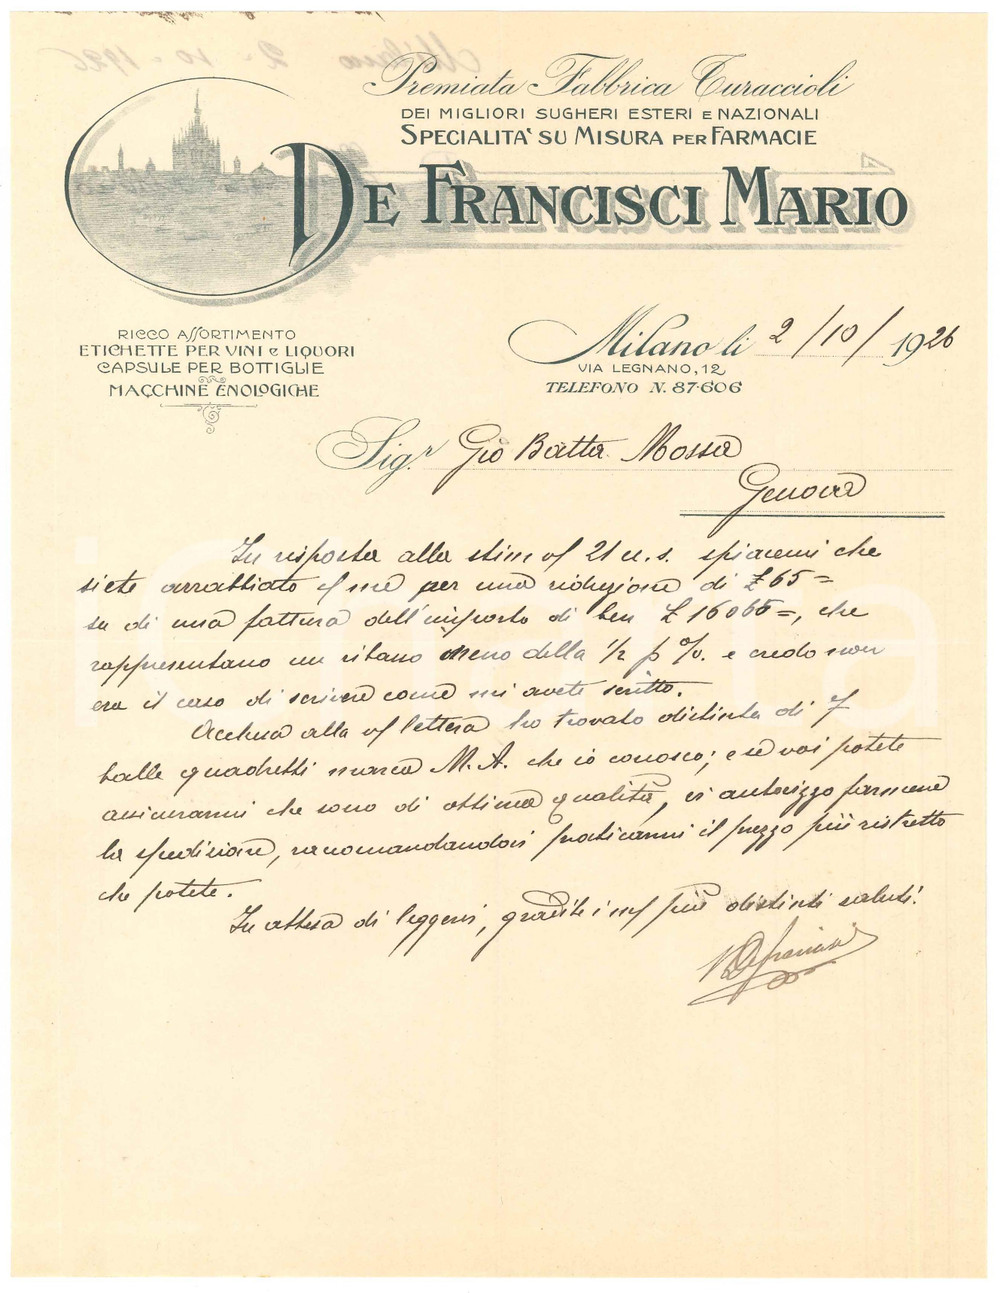 Premiata Fabbrica Turaccioli
DEI MIGLIORI SUGHERI ESTERI E NAZIONALI
SPECIALITA' SU MISURA PER FARMACIE
DE FRANCISCI MARIO
RICCO ASSORTIMENTO
ETICHETTE PER VINI e LIQUORI
CAPSULE PER BOTTIGLIE
MACCHINE ENOLOGICHE
Milano li 2/10/1926
VIA LEGNANO, 12
TELEFONO N. 87-606
Sig.r Gio Batta Mossa
Genova
In risposta alla stim vs 21 u.s. spiacemi che
siete arrabbiato per una riduzione di £ 65=
su di una fattura dell'importo di ben £ 16065=, che
rappresentano un ribasso meno della 1/2 p %. e credo non
era il caso di scrivere come mi avete scritto.
Acclusa alla vs lettera ho trovato distinta di 7
balle quadretti marca M.A. che io conosco; e se voi potete
assicurarmi che sono di ottima qualità, vi autorizzo farmene
la spedizione, raccomandandovi praticarmi il prezzo più ristretto
che potete.
In attesa di leggervi, gradite i miei più distinti saluti.
MDefrancisci
Milano 2-10-1926